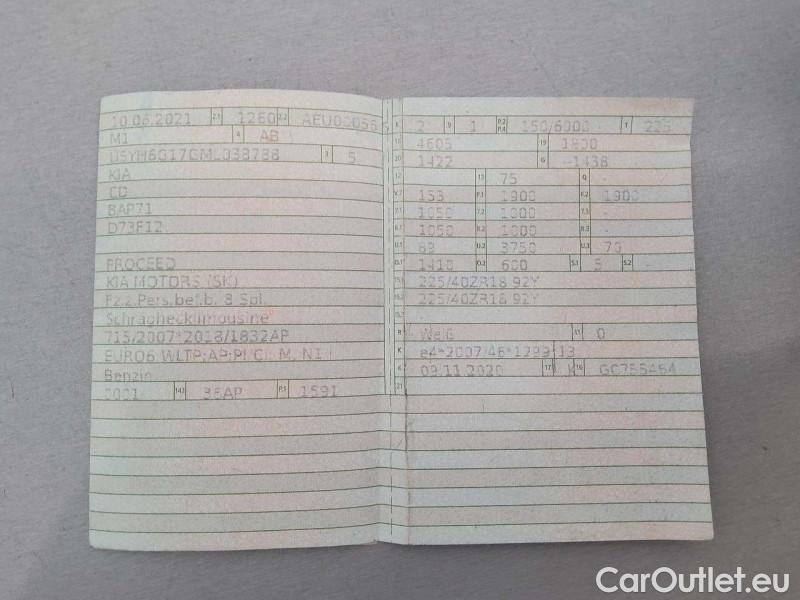 10.06.2021 2.1 1260 2.2
M1 4 AB
U5YH6G17GML038788 3 5
KIA
CD
BAP71
D73F12
PROCEED
KIA MOTORS (SK)
Fz.z.Pers.bef.b. 8 Spl.
Schräghecklimousine
715/2007*2018/1832AP
EURO6 WLTP;AP;PI/CI; M, N1 I
Benzin
0001 14.1 36AP P.3 1591
L 2 9 1 P.2 P.4 150/6000 T 225
18 4605 19 1800
20 1422 G -1438
12 - 13 75 Q -
V.7 153 F.1 1900 F.2 1900
7.1 1050 7.2 1000 7.3 -
8.1 1050 8.2 1000 8.3 -
U.1 83 U.2 3750 U.3 70
O.1 1410 O.2 600 S.1 5 S.2 -
15.1 225/40ZR18 92Y
15.2 225/40ZR18 92Y
R Weiß 11 0
K e4*2007/46*1299*13
6 09.11.2020 17 K 16 GC755464
21
CarOutlet.eu